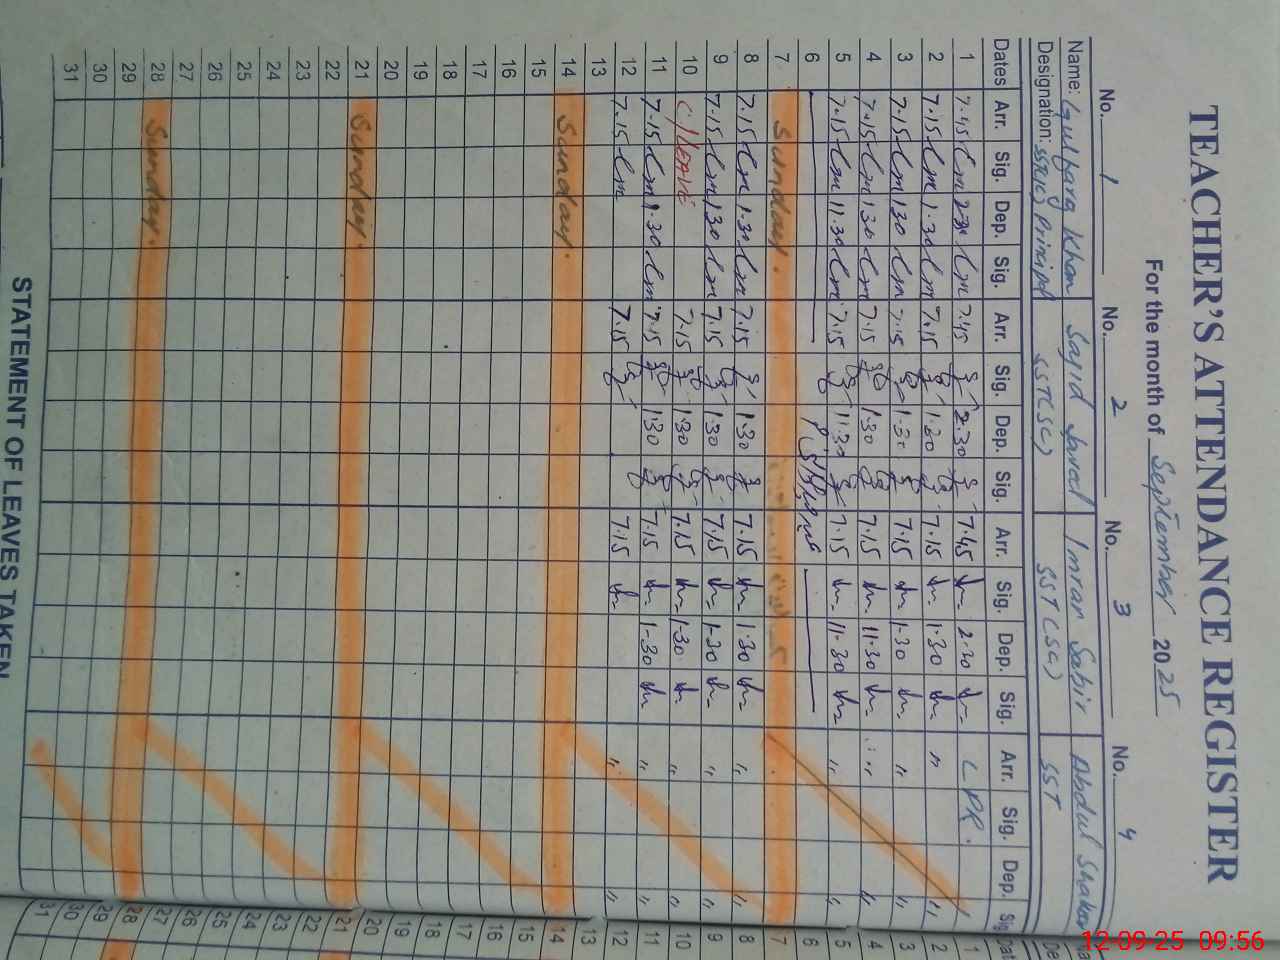 TEACHER'S ATTENDANCE REGISTER
For the month of September 2025
No. 1 No. 2 No. 3 No. 4
Name: Gulbarg Khan Sajid Javed Imran Sabir Abdul Shakoor
Designation: Principal SST(SC) SST(SC) SST
Dates Arr. Sig. Dep. Sig. Arr. Sig. Dep. Sig. Arr. Sig. Dep. Sig. Arr. Sig. Dep. Sig.
1 7.45 2.30 7.45 2.30 7.45 2.30 LPR.
2 7.15 1.30 7.15 1.30 7.15 1.30 " "
3 7.15 1.30 7.15 1.30 7.15 1.30 "
4 7.15 1.30 7.15 1.30 7.15 11.30 " "
5 7.15 11.30 7.15 11.30 7.15 11.30 " "
6
7 Sunday.
8 7.15 1.30 7.15 1.30 7.15 1.30 " "
9 7.15 1.30 7.15 1.30 7.15 1.30 " "
10 C/LEAVE 7.15 1.30 7.15 1.30 " "
11 7.15 1.30 7.15 1.30 7.15 1.30 " "
12 7.15 7.15 7.15 " "
13
14 Sunday.
15
16
17
18
19
20
21 Sunday.
22
23
24
25
26
27
28 Sunday.
29
30
31
STATEMENT OF LEAVES TAKEN
1
2
3
4
5
6
7
8
9
10
11
12
13
14
15
16
17
18
19
20
21
22
23
24
25
26
27
28
29
30
31
12-09-25 09:56